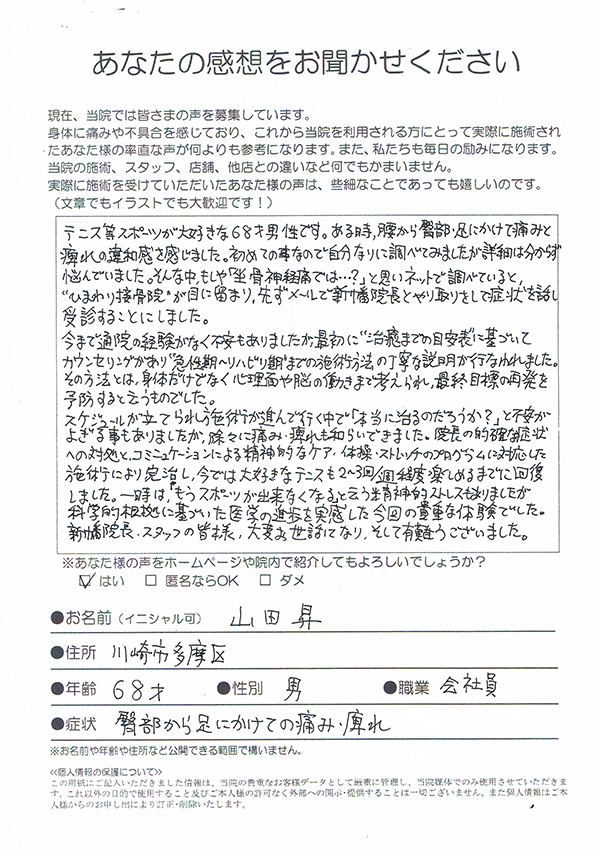 あなたの感想をお聞かせください
現在、当院では皆さまの声を募集しています。
身体に痛みや不具合を感じており、これから当院を利用される方にとって実際に施術され
たあなた様の率直な声が何よりも参考になります。また、私たちも毎日の励みになります。
当院の施術、スタッフ、店舗、他店との違いなど何でもかまいません。
実際に施術を受けていただいたあなた様の声は、些細なことであっても嬉しいのです。
（文章でもイラストでも大歓迎です！）
テニス等スポーツが大好きな68才男性です。ある時，腰から臀部・足にかけて痛みと
痺れの違和感を感じました。初めての事なので自分なりに調べてみましたが詳細は分からず
悩んでいました。そんな中，もしや「坐骨神経痛では…？」と思いネットで調べていると，
"ひまわり接骨院"が目に留まり，先ずメールで新幡院長とやり取りをして症状を話し
受診することにしました。
今まで通院の経験がなく不安もありましたが，最初に"治癒までの目安表"に基づいて
カウンセリングがあり"急性期〜リハビリ期"までの施術方法の丁寧な説明が行なわれました。
その方法とは，身体だけでなく心理面や脳の働きまで考えられ，最終目標の再発を
予防すると云うものでした。
スケジュールが立てられ，施術が進んで行く中で「本当に治るのだろうか？」と不安が
よぎる事もありましたが，除々に痛み・痺れも和らいできました。院長の的確な症状
への対処と，コミュニケーションによる精神的なケア，体操・ストレッチのプログラムに対応した
施術により完治し，今では大好きなテニスも2〜3回/週程度楽しめるまでに回復
しました。一時は，"もうスポーツが出来なくなる"と云う精神的ストレスもありましたが
科学的根拠に基づいた医学の進歩を実感した今回の貴重な体験でした。
新幡院長・スタッフの皆様，大変お世話になり，そして有難うございました。
※あなた様の声をホームページや院内で紹介してもよろしいでしょうか？
☑ はい □ 匿名ならOK □ ダメ
●お名前（イニシャル可） 山田 昇
●住所 川崎市多摩区
●年齢 68才 ●性別 男 ●職業 会社員
●症状 臀部から足にかけての痛み・痺れ
※お名前や年齢や住所など公開できる範囲で構いません。
≪個人情報の保護について≫
この用紙にご記入いただきました情報は、当院の貴重なお客様データとして厳重に管理し、当院媒体でのみ使用させていただきま
す。これ以外の目的で使用すること及びご本人様の許可なく外部への開示・提供することは一切ございません。また個人情報はご本
人様からのお申し出により訂正・削除いたします。